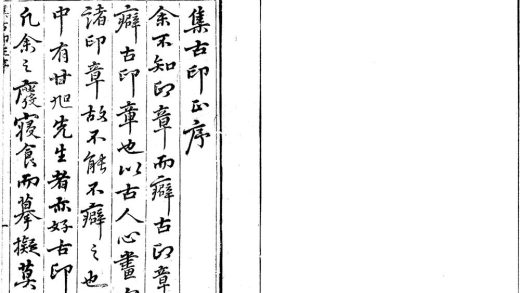 集古印正序
余不知印章而癖古印章
癖古印章也以古人心畫
諸印章故不能不癖之也
中有甘旭先生者亦好古印
凡余之廢寢食而摹擬莫